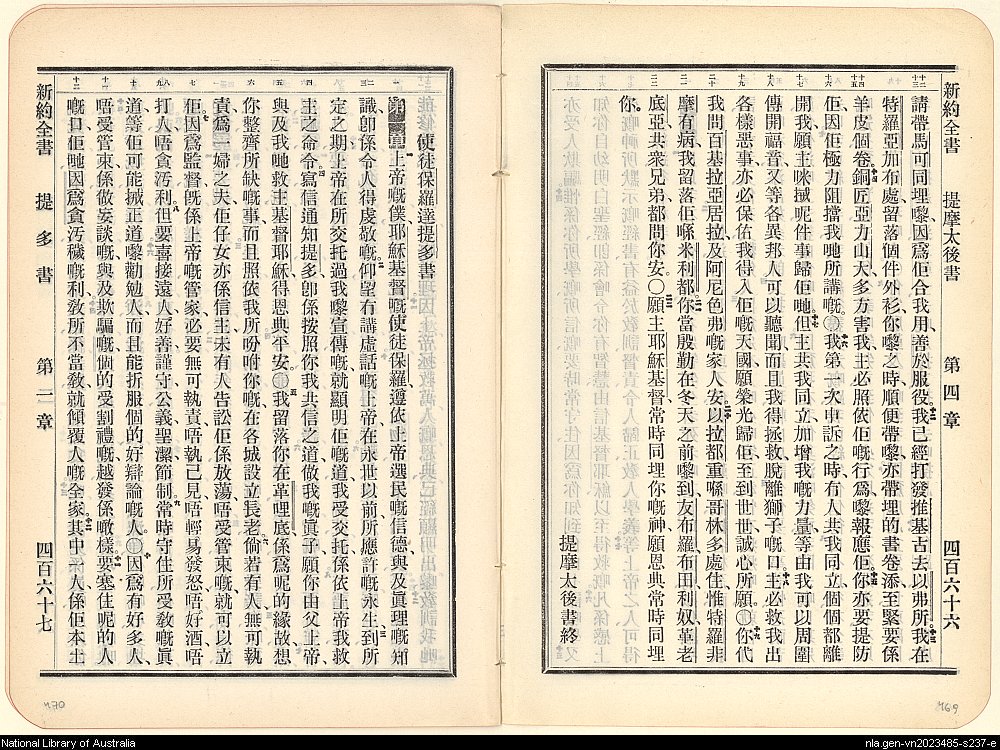 新約全書 提摩太後書 第四章 四百六十六
請帶馬可同埋嚟因爲佢合我用善於服役我已經打發推基古去以弗所我在
特羅亞加布處留落個件外衫你嚟之時順便帶嚟亦帶埋的書卷添至緊要係
羊皮個卷銅匠亞力山大多方害我主必照依佢嘅行爲嚟報應佢你亦要提防
佢因佢極力阻擋我哋所講嘅〇我第一次申訴之時冇人共我同立個個都離
開我願主咪搣呢件事歸佢哋但主共我同立加增我嘅力量等由我可以周圍
傳開福音又等各異邦人可以聽聞而且我得拯救脫離獅子嘅口主必救我出
各樣惡事亦必保佑我得入佢嘅天國願榮光歸佢至到世世誠心所願〇你代
我問百基拉亞居拉及阿尼色弗嘅家人安以拉都重喺哥林多處住惟特羅非
摩有病我留落佢喺米利都你當殷勤在冬天之前嚟到友布羅布田利奴革老
底亞共衆兄弟都問你安〇願主耶穌基督常時同埋你嘅神願恩典常時同埋
你
提摩太後書終
新約全書 提多書 第一章 四百六十七
使徒保羅達提多書
上帝嘅僕耶穌基督嘅使徒保羅遵依上帝選民嘅信德與及眞理嘅知
識卽係令人得虔敬嘅仰望有講虛話嘅上帝在永世以前所應許嘅永生到所
定之期上帝在所交托過我嚟宣傳嘅就顯明佢嘅道我受交托係依上帝我救
主之命令寫信通知提多卽係按照你我共信之道做我嘅眞子願你由父上帝
與及我哋救主基督耶穌得恩典平安〇我留落你在革哩底係爲呢的緣故想
你整齊所缺嘅事而且照依我所吩咐你嘅在各城設立長老倘若有人無可執
責爲一婦之夫佢仔女亦係信主未有人告訟佢係放蕩唔受管束嘅就可以立
佢因爲監督旣係上帝嘅管家必要無可執責唔執己見唔輕易發怒唔好酒唔
打人唔貪汚利但要喜接遠人好善謹守公義聖潔節制常時守住所受敎嘅眞
道等佢可能搣正道嚟勸勉人而且能折服個的好辯論嘅人〇因爲有好多人
唔受管束係做妄談嘅與及欺騙嘅個的受割禮嘅越發係噉樣要塞住呢的人
嘅口佢哋因爲貪汚穢嘅利敎所不當敎就傾覆人嘅全家其中一人係佢本土
170
169
National Library of Australia
nla.gen-vn2023485-s237-e